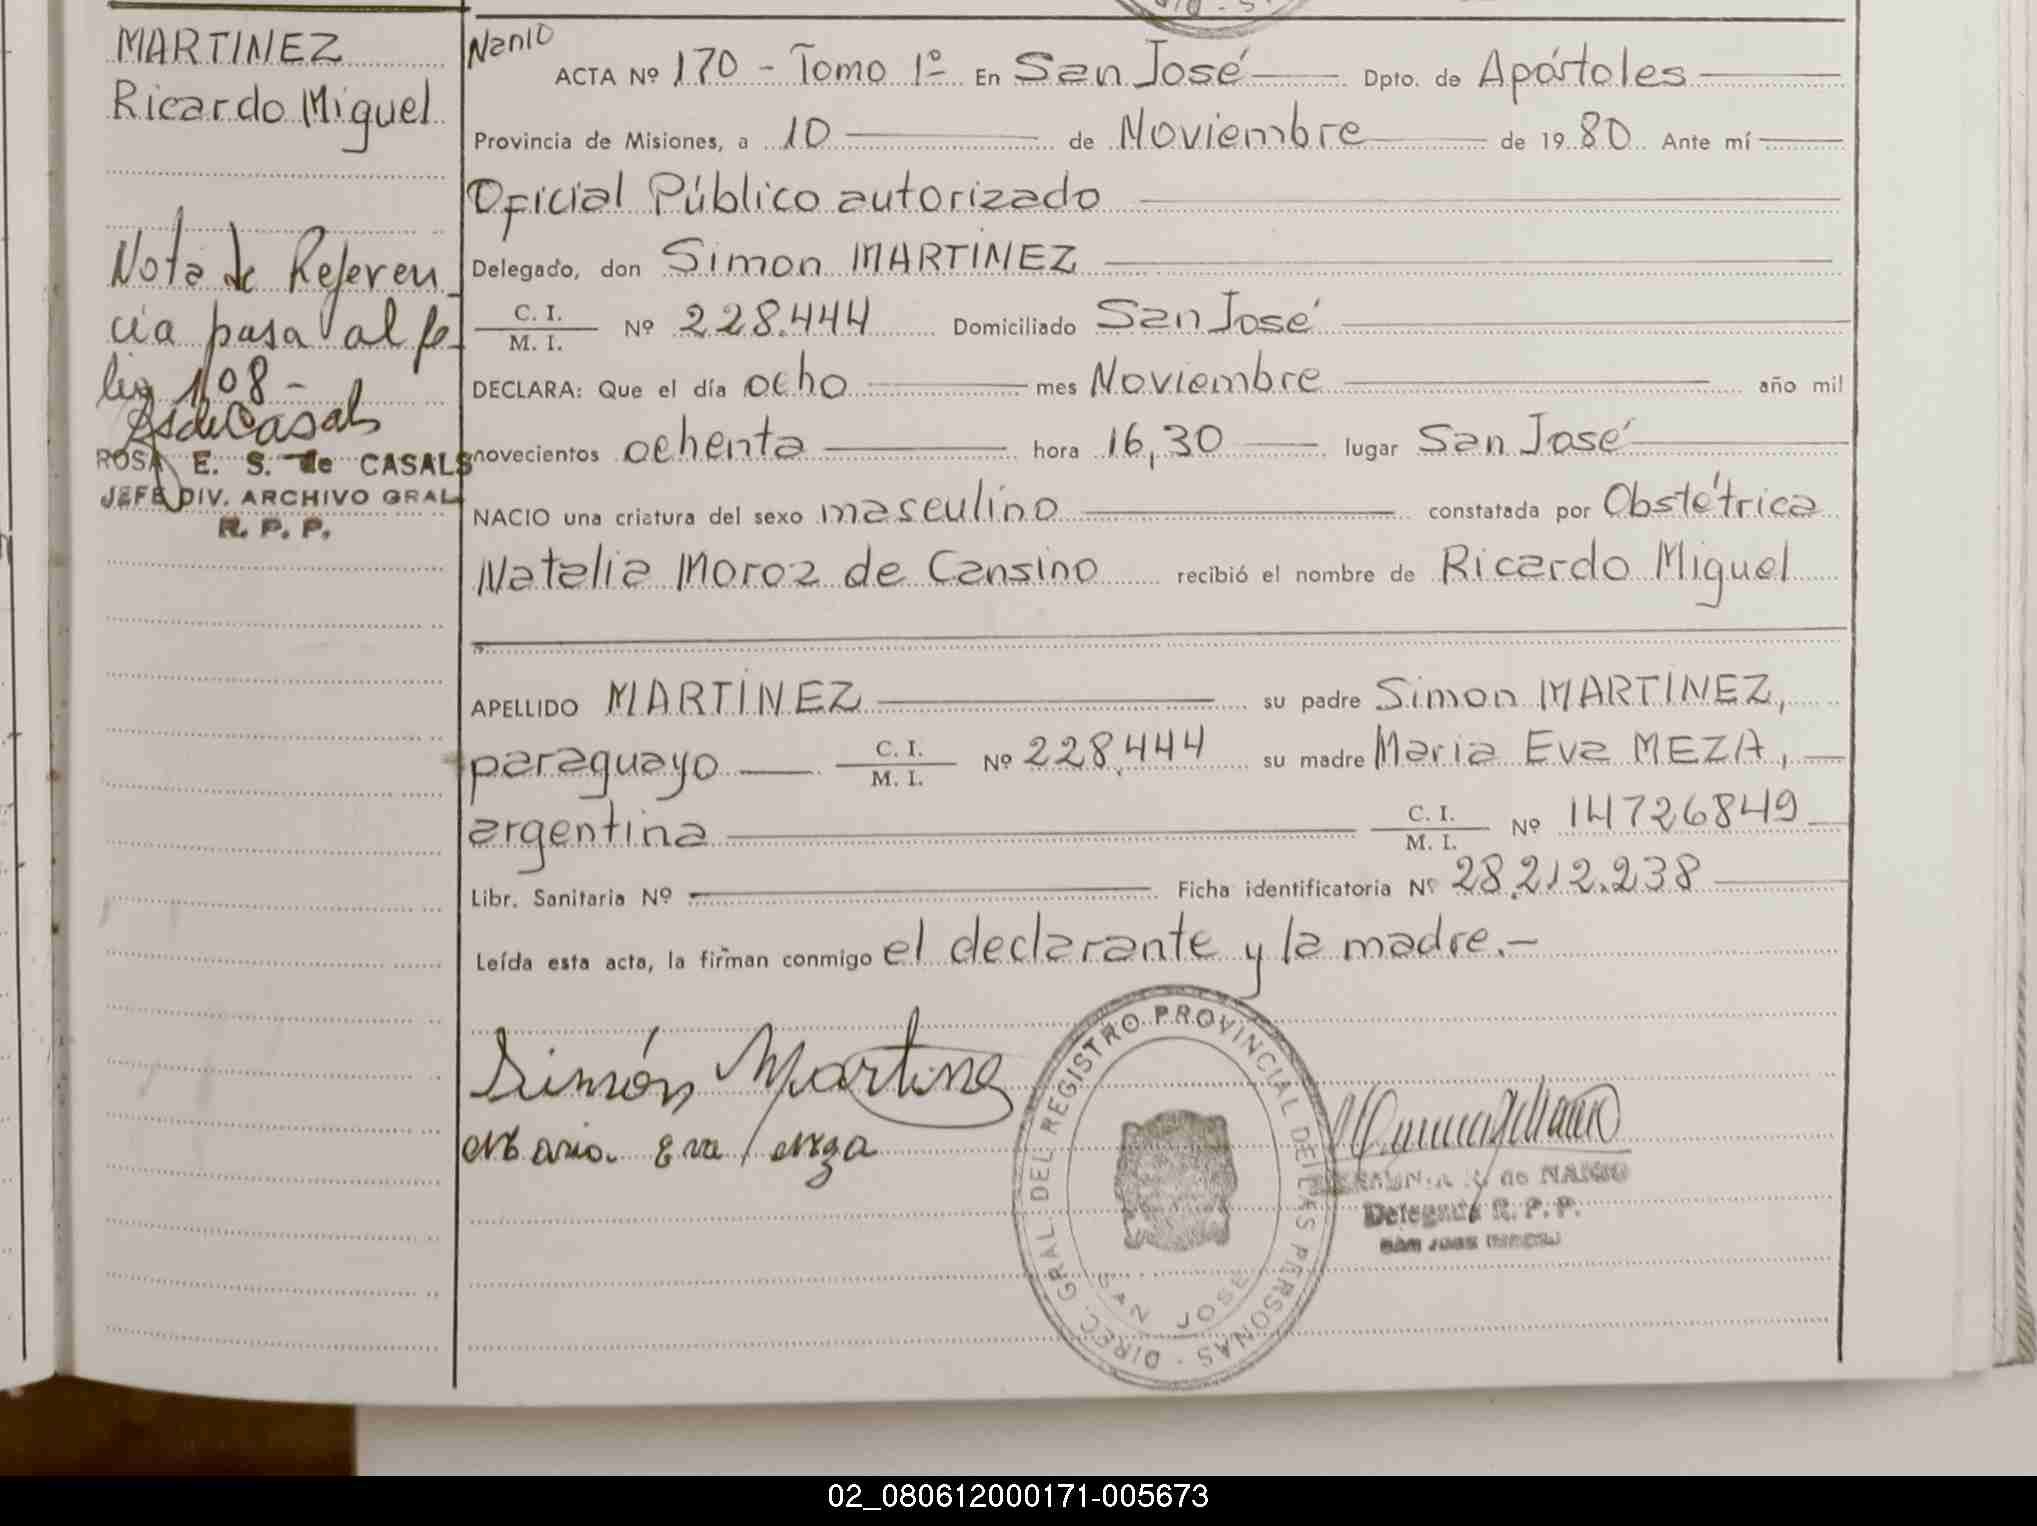 MARTINEZ
Ricardo Miguel
Nota de Referen
cia pasa al fo-
lio 108 -
ROSA E. S. de CASALS
JEFE DIV. ARCHIVO GRAL
R. P. P.
ACTA Nº 170 - Tomo 1º En San José Dpto. de Apóstoles
Provincia de Misiones, a 10 de Noviembre de 19 80 Ante mí
Oficial Público autorizado
Delegado, don Simon MARTINEZ
C. I.
M. I.
Nº 228.444 Domiciliado San José
DECLARA: Que el día ocho mes Noviembre año mil
novecientos ochenta hora 16,30 lugar San José
NACIO una criatura del sexo masculino constatada por Obstétrica
Natalia Moroz de Cansino recibió el nombre de Ricardo Miguel
APELLIDO MARTINEZ su padre Simon MARTINEZ,
paraguayo C. I. M. I. Nº 228.444 su madre Maria Eva MEZA,
argentina C. I. M. I. Nº 14726849
Libr. Sanitaria Nº Ficha identificatoria Nº 28.212.238
Leída esta acta, la firman conmigo el declarante y la madre.-
Simón Martinez
Maria Eva Meza
DIREC. GRAL. DEL REGISTRO PROVINCIAL DE LAS PERSONAS
SAN JOSE
de NANIO
Delegada R. P. P.
02_080612000171-005673